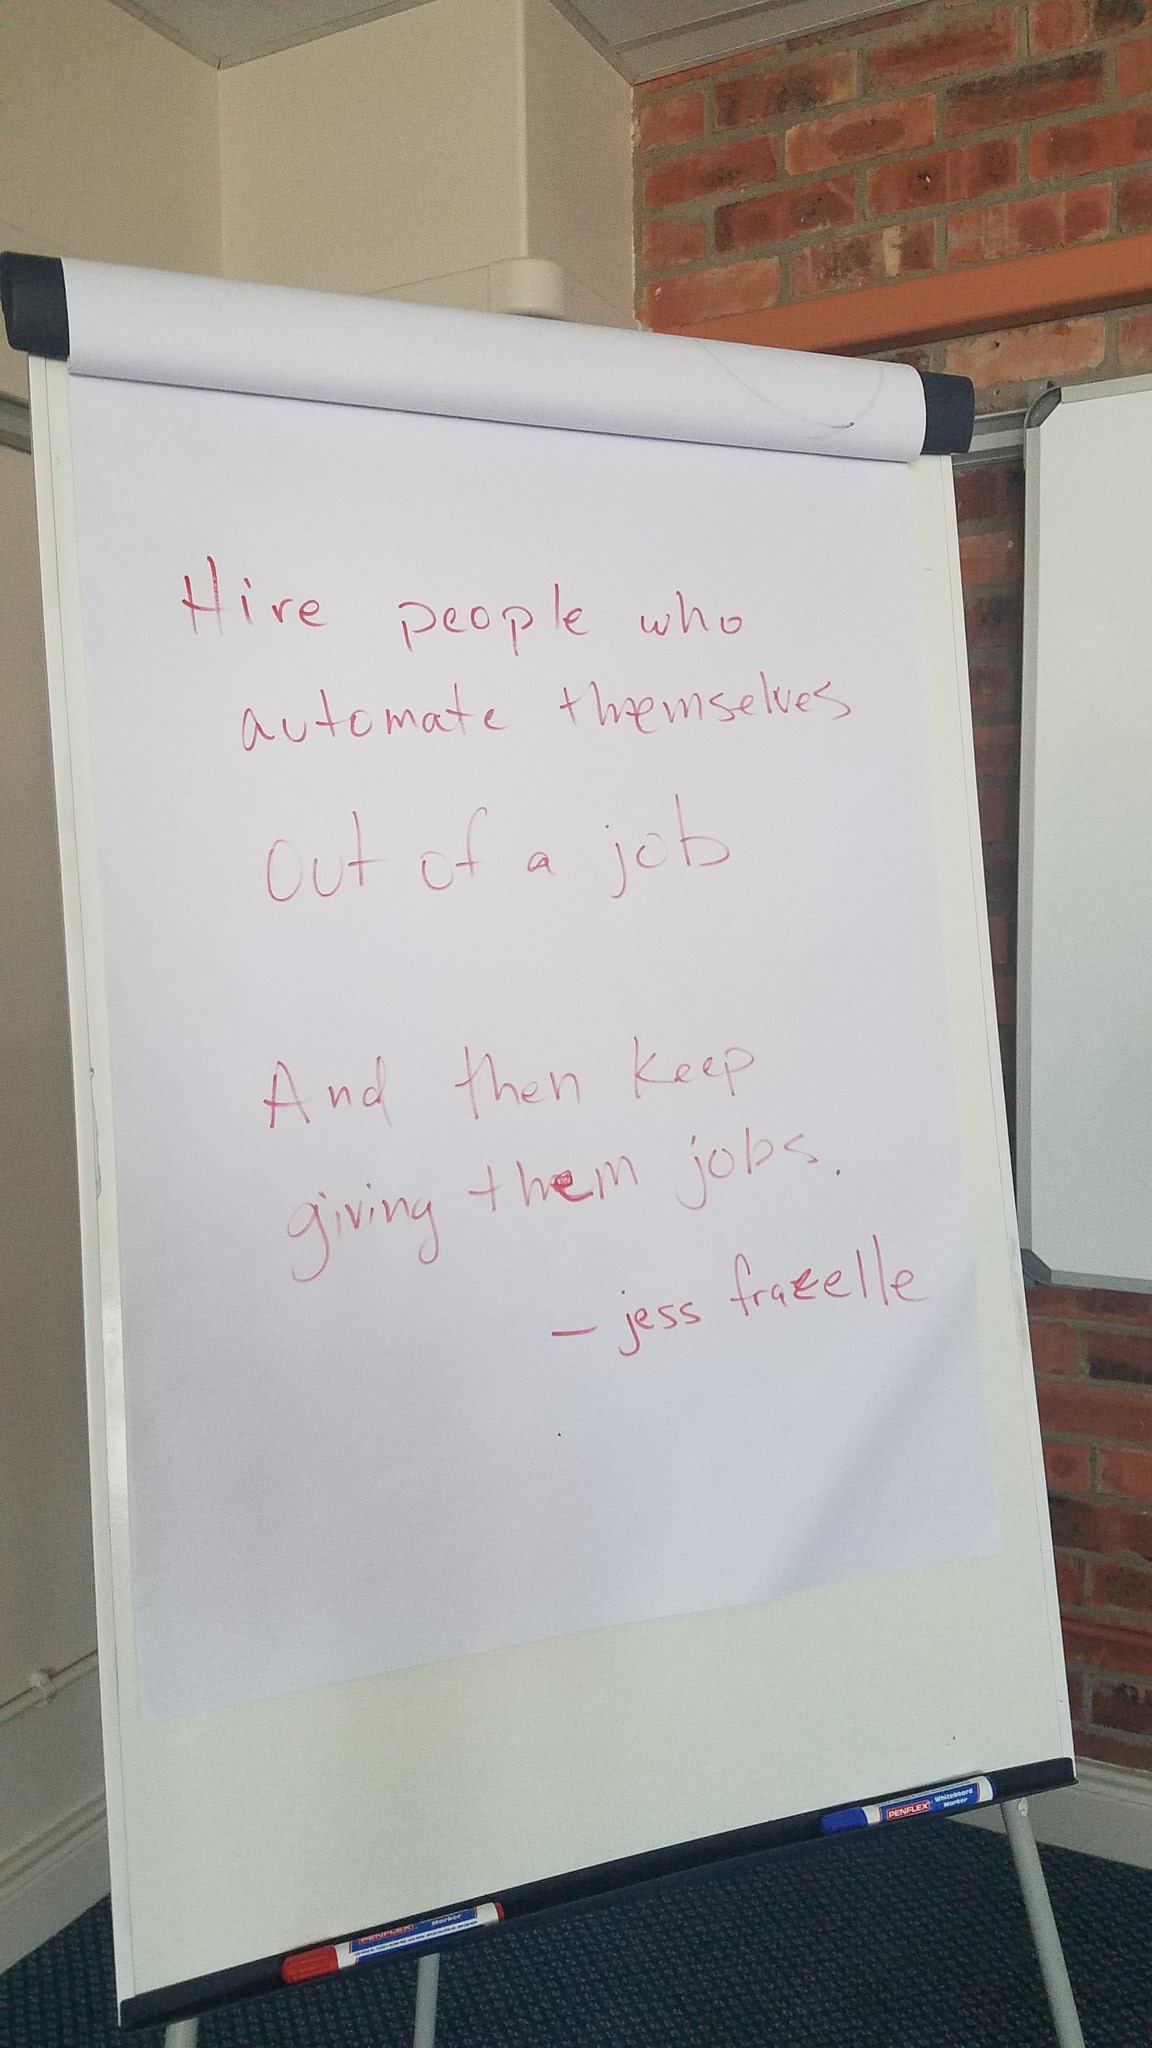 Hire people who
automate themselves
out of a job
And then keep
giving them jobs.
- jess frazelle
PENFLEX Whiteboard
Marker
PENFLEX Marker